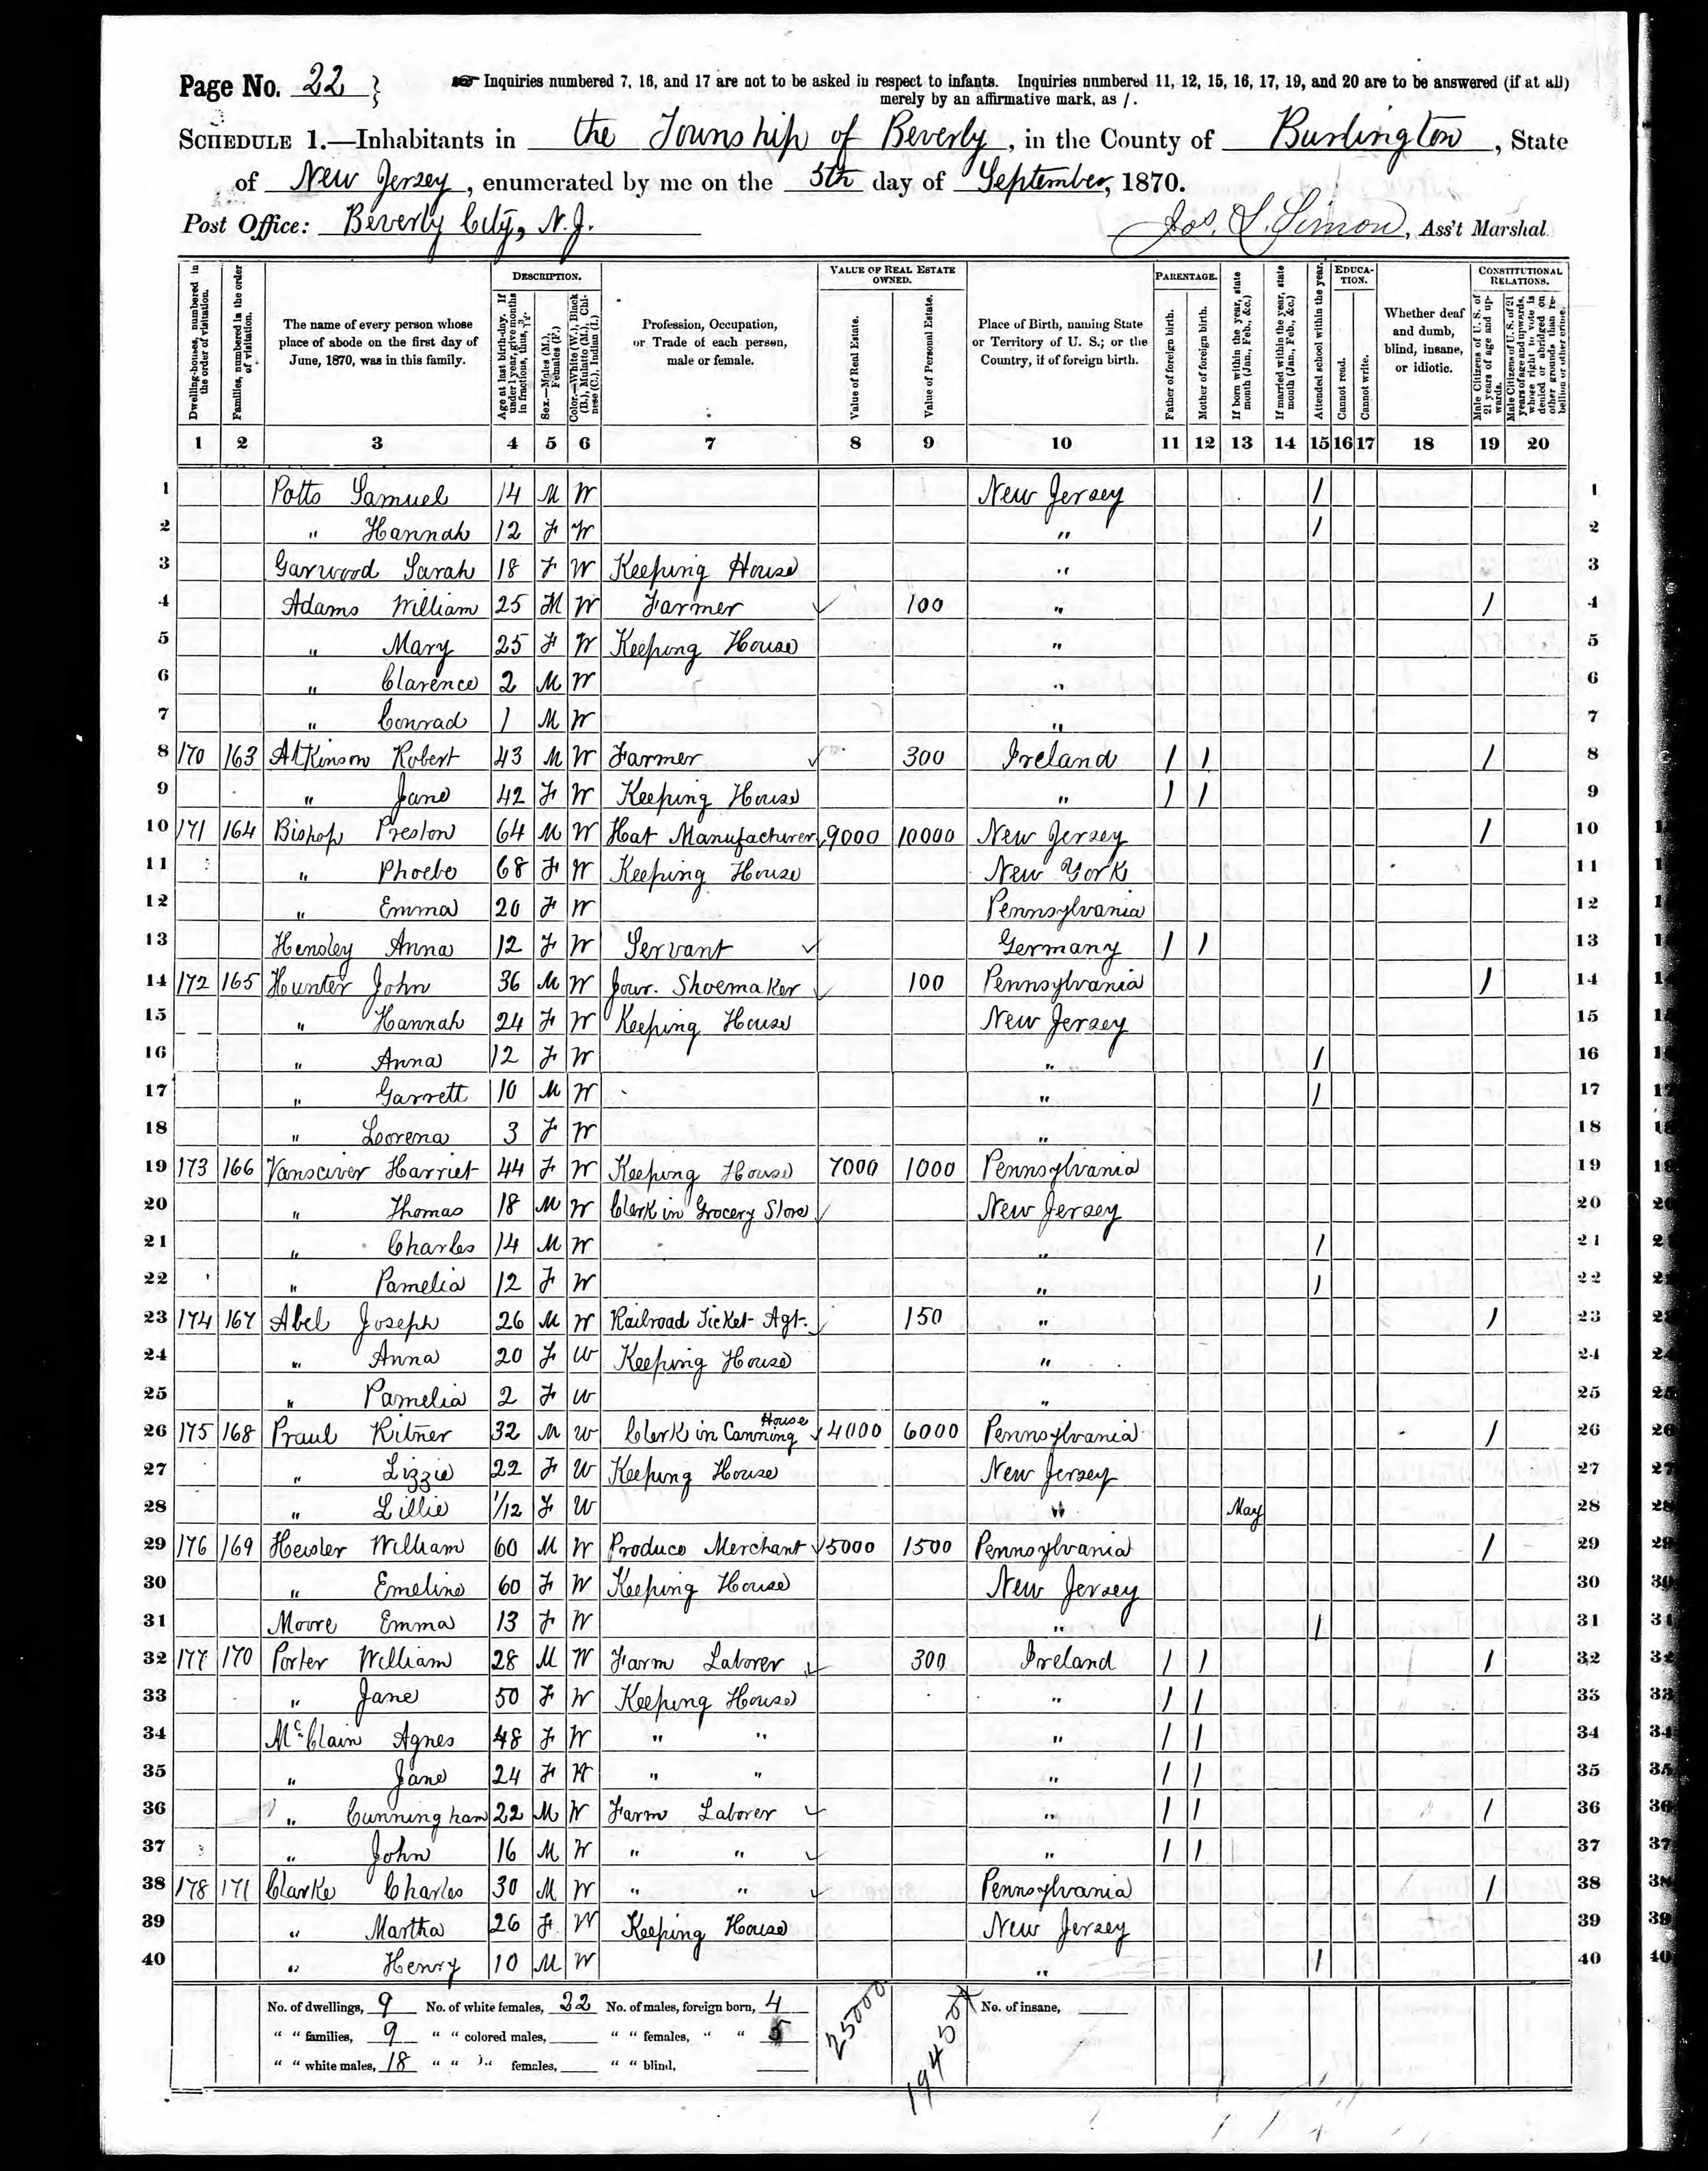 Page No. 22 }
☞ Inquiries numbered 7, 16, and 17 are not to be asked in respect to infants. Inquiries numbered 11, 12, 15, 16, 17, 19, and 20 are to be answered (if at all)
merely by an affirmative mark, as /.
SCHEDULE 1.—Inhabitants in the Township of Beverly, in the County of Burlington, State
of New Jersey, enumerated by me on the 5th day of September, 1870.
Post Office: Beverly City, N.J.
Jos. L. Simon, Ass't Marshal.
DESCRIPTION.
VALUE OF REAL ESTATE OWNED.
PARENTAGE.
EDUCATION.
CONSTITUTIONAL RELATIONS.
Dwelling-houses, numbered in the order of visitation.
Families, numbered in the order of visitation.
The name of every person whose place of abode on the first day of June, 1870, was in this family.
Age at last birth-day. If under 1 year, give months in fractions, thus, 3/12.
Sex.—Males (M.), Females (F.)
Color.—White (W.), Black (B.), Mulatto (M.), Chinese (C.), Indian (I.)
Profession, Occupation, or Trade of each person, male or female.
Value of Real Estate.
Value of Personal Estate.
Place of Birth, naming State or Territory of U. S.; or the Country, if of foreign birth.
Father of foreign birth.
Mother of foreign birth.
If born within the year, state month (Jan., Feb., &c.)
If married within the year, state month (Jan., Feb., &c.)
Attended school within the year.
Cannot read.
Cannot write.
Whether deaf and dumb, blind, insane, or idiotic.
Male Citizens of U. S. of 21 years of age and upwards.
Male Citizens of U. S. of 21 years of age and upwards, whose right to vote is denied or abridged on other grounds than rebellion or other crime.
1 2 3 4 5 6 7 8 9 10 11 12 13 14 15 16 17 18 19 20
1 Potts Samuel 14 M W New Jersey / 1
2 " Hannah 12 F W " / 2
3 Garwood Sarah 18 F W Keeping House " 3
4 Adams William 25 M W Farmer ✓ 100 " / 4
5 " Mary 25 F W Keeping House " 5
6 " Clarence 2 M W " 6
7 " Conrad 1 M W " 7
8 170 163 Atkinson Robert 43 M W Farmer ✓ 300 Ireland / / / 8
9 " Jane 42 F W Keeping House " / / 9
10 171 164 Bishop Preston 64 M W Hat Manufacturer ✓ 9000 10000 New Jersey / 10
11 " Phoebe 68 F W Keeping House New York 11
12 " Emma 20 F W Pennsylvania 12
13 Hensley Anna 12 F W Servant ✓ Germany / / 13
14 172 165 Hunter John 36 M W Jour. Shoemaker ✓ 100 Pennsylvania / 14
15 " Hannah 24 F W Keeping House New Jersey 15
16 " Anna 12 F W " / 16
17 " Garrett 10 M W " / 17
18 " Lorena 3 F W " 18
19 173 166 Vansciver Harriet 44 F W Keeping House 7000 1000 Pennsylvania 19
20 " Thomas 18 M W Clerk in Grocery Store ✓ New Jersey 20
21 " Charles 14 M W " / 21
22 " Pamelia 12 F W " / 22
23 174 167 Abel Joseph 26 M W Railroad Ticket Agt. ✓ 150 " / 23
24 " Anna 20 F W Keeping House " 24
25 " Pamelia 2 F W " 25
26 175 168 Praul Kitner 32 M W Clerk in Canning House ✓ 4000 6000 Pennsylvania / 26
27 " Lizzie 22 F W Keeping House New Jersey 27
28 " Lillie 1/12 F W " May 28
29 176 169 Heisler William 60 M W Produce Merchant ✓ 5000 1500 Pennsylvania / 29
30 " Emeline 60 F W Keeping House New Jersey 30
31 Moore Emma 13 F W " / 31
32 177 170 Porter William 28 M W Farm Laborer ✓ 300 Ireland / / / 32
33 " Jane 50 F W Keeping House " / / 33
34 McClain Agnes 48 F W " " " / / 34
35 " Jane 24 F W " " " / / 35
36 " Cunningham 22 M W Farm Laborer ✓ " / / / 36
37 " John 16 M W " " ✓ " / / 37
38 178 171 Clarke Charles 30 M W " " ✓ Pennsylvania / 38
39 " Martha 26 F W Keeping House New Jersey 39
40 " Henry 10 M W " / 40
No. of dwellings, 9 No. of white females, 22 No. of males, foreign born, 4 25000 19450 No. of insane,
" " families, 9 " " colored males, " " females, " " 5
" " white males, 18 " " " females, " " blind,